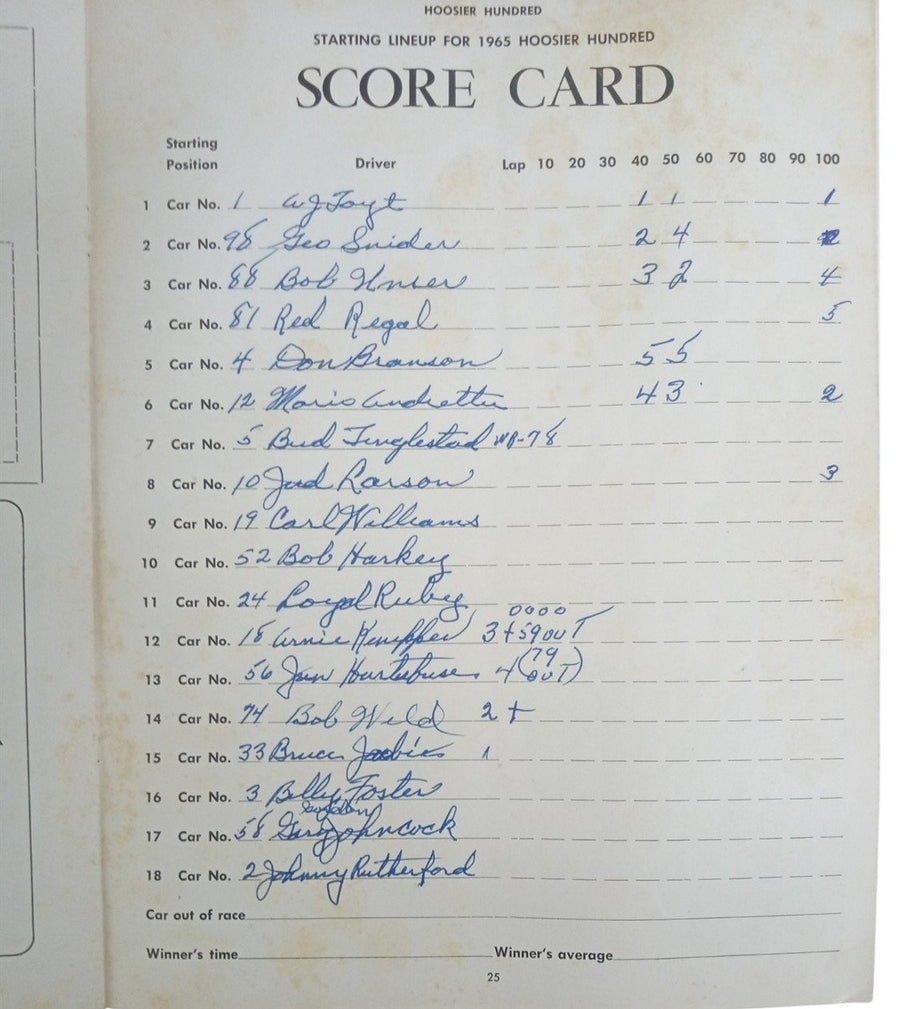 HOOSIER HUNDRED
STARTING LINEUP FOR 1965 HOOSIER HUNDRED
SCORE CARD
Starting
Position Driver Lap 10 20 30 40 50 60 70 80 90 100
1 Car No. 1 AJ Foyt 1 1 1
2 Car No. 98 Geo Snider 2 4
3 Car No. 88 Bob Unser 3 2 4
4 Car No. 81 Red Regal 5
5 Car No. 4 Don Branson 5 5
6 Car No. 12 Mario Andretti 4 3 2
7 Car No. 5 Bud Tinglestad WR-78
8 Car No. 10 Jud Larson 3
9 Car No. 19 Carl Williams
10 Car No. 52 Bob Harkey
11 Car No. 24 Loyal Ruby
0000
12 Car No. 18 Arnie Knepper 3 + 59 OUT
13 Car No. 56 Jim Hurtubise 4 (79 OUT)
14 Car No. 74 Bob Wild 2 +
15 Car No. 33 Bruce 1
16 Car No. 3 Billy Foster
Gordon
17 Car No. 58 Gary Johncock
18 Car No. 2 Johnny Rutherford
Car out of race
Winner's time Winner's average
25